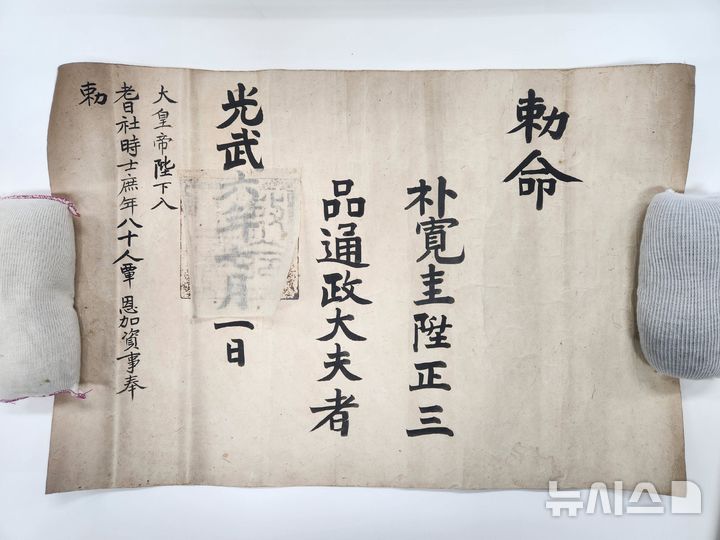 勅命
朴寬圭陞正三
品通政大夫者
光武六年七月一日
大皇帝陛下入
耆社時士庶年八十人覃恩加資事奉
勅
뉴시스